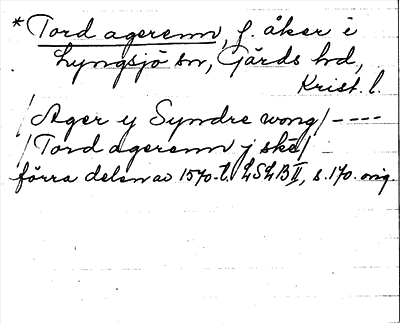 *Tord agerenn, f. åker i
Lyngsjö sn, Gärds hd,
Krist. l.
/Ager y Syndre wong/ ----
/Tord agerenn j ske/
förra delen av 1570-t. LSLB II, s. 170. orig.